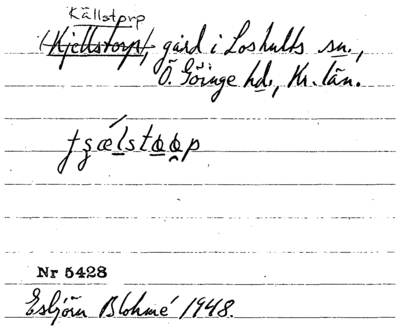 Källstorp
(Kjellstorp), gård i Loshults sn.,
Ö. Göinge hd., Kr. län.
Nr 5428
Esbjörn Blohmé 1948.